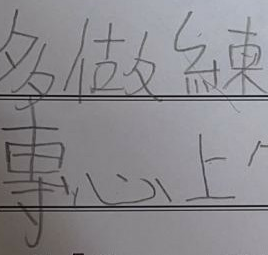 多做練
專心上